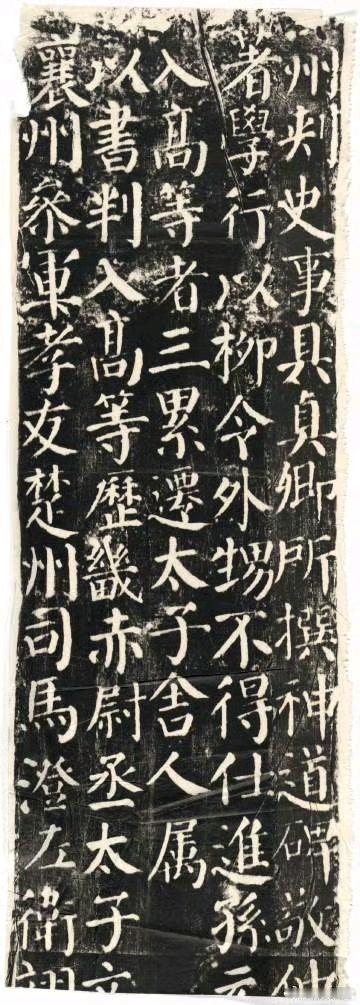 州刾史事具真卿所撰神道碑敬仲
著學行以柳令外甥不得仕進孫元
入髙等者三累遷太子舍人属
以書判入髙等歷畿赤尉丞太子文
襄州參軍孝友楚州司馬澄左衛翊